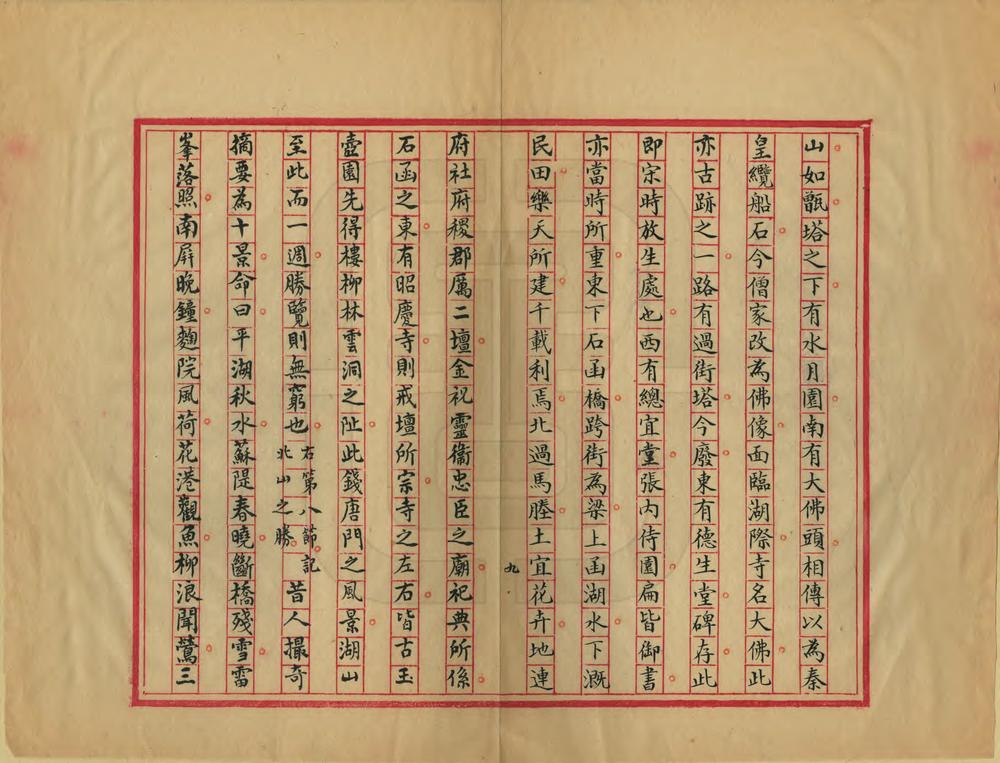 山如甑塔之下有水月園南有大佛頭相傳以為秦
皇纜船石今僧家改為佛像面臨湖際寺名大佛此
亦古跡之一路有過街塔今廢東有德生堂碑存此
即宋時放生處也西有總宜堂張內侍園扁皆御書
亦當時所重東下石函橋跨街為梁上函湖水下溉
民田樂天所建千載利焉北過馬塍土宜花卉地連
九
府社府稷郡厲二壇金祝靈衞忠臣之廟祀典所係
石函之東有昭慶寺則戒壇所宗寺之左右皆古玉
壺園先得樓柳林雲洞之阯此錢唐門之風景湖山
至此而一週勝覽則無窮也右第八節記北山之勝昔人撮奇
摘要為十景命曰平湖秋水蘇隄春曉斷橋殘雪雷
峯落照南屏晚鐘麴院風荷花港觀魚柳浪聞鶯三